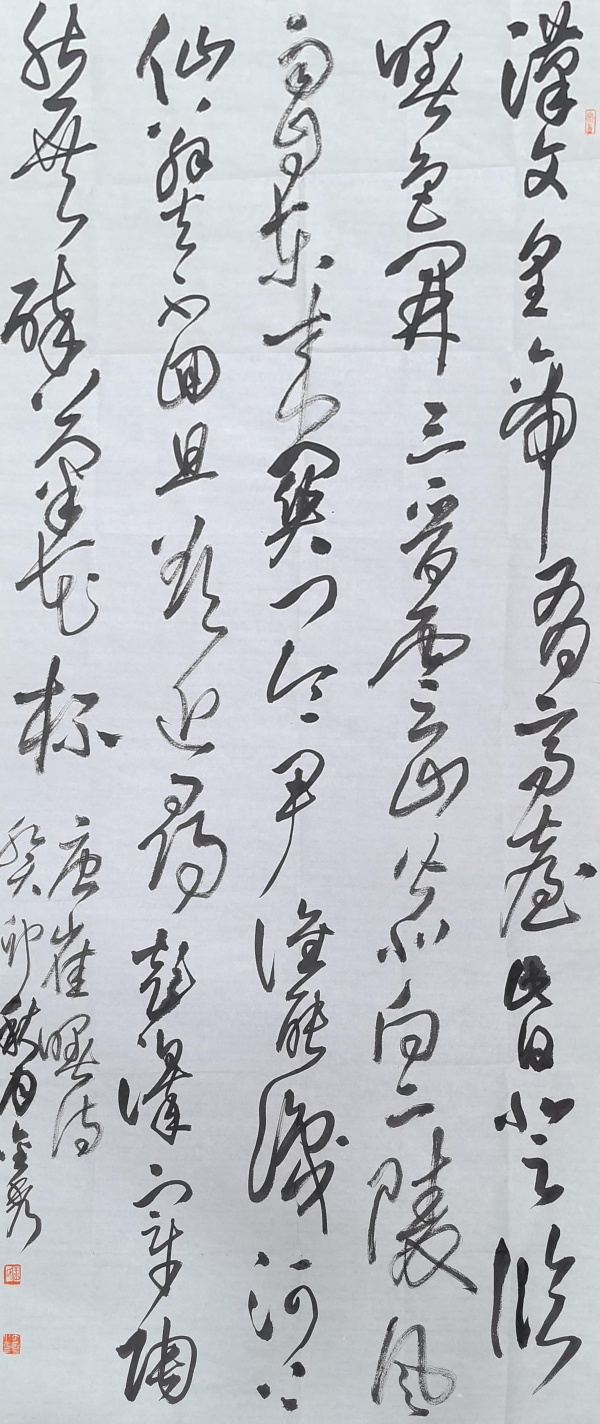 漢文皇帝有高臺此日登臨
曙色開三晉雲山皆北向二陵風
雨自東来關門令尹誰能識河上
仙翁去不回且欲近尋彭澤宰陶
然共醉菊花杯
唐崔曙詩
癸卯秋月